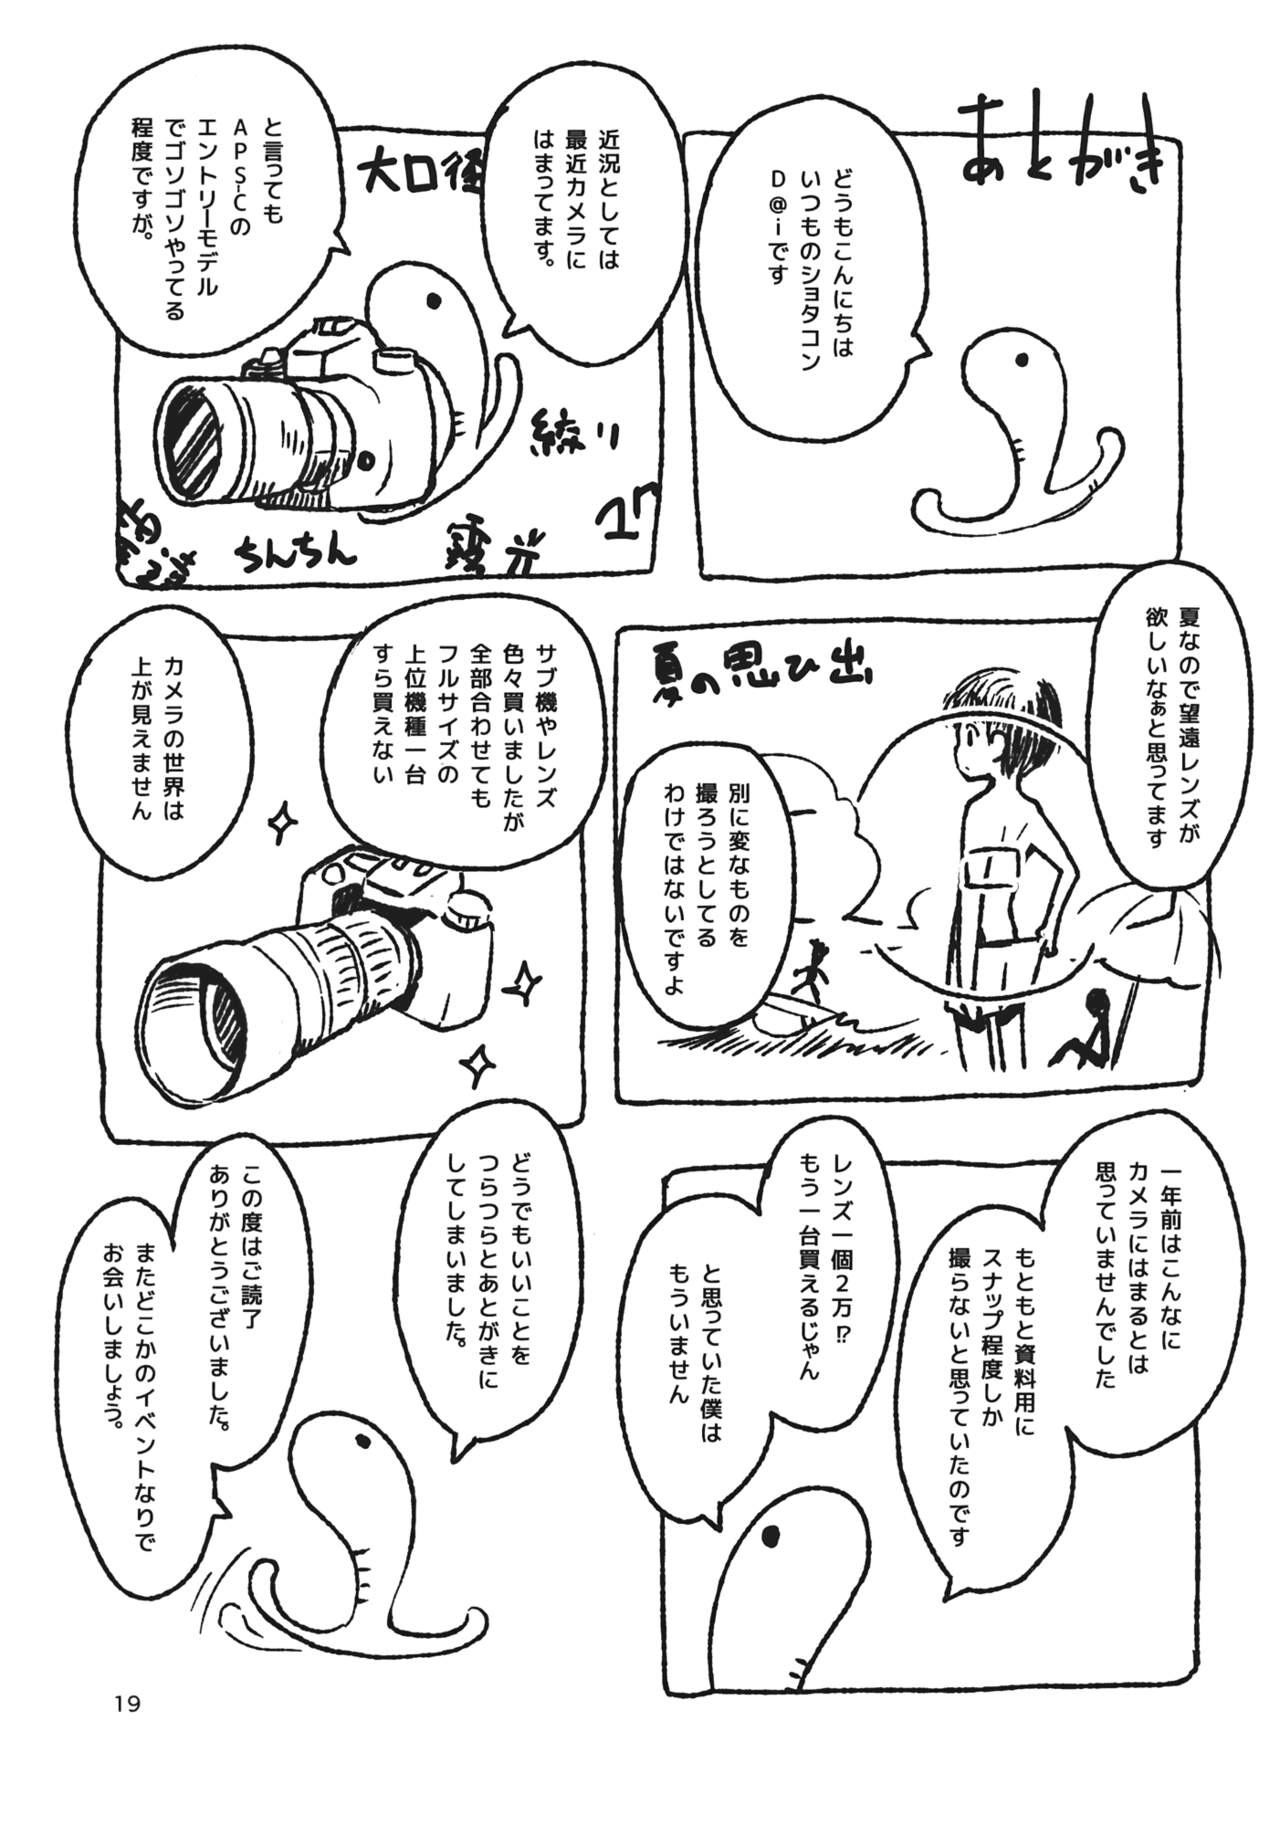 あとがき
どうもこんにちは
いつものショタコン
D@iです
近況としては
最近カメラに
はまってます。
と言っても
APS-Cの
エントリーモデル
でゴソゴソやってる
程度ですが。
大口径
絞り
ちんちん
夏なので望遠レンズが
欲しいなぁと思ってます
夏の思ひ出
別に変なものを
撮ろうとしてる
わけではないですよ
サブ機やレンズ
色々買いましたが
全部合わせても
フルサイズの
上位機種一台
すら買えない
カメラの世界は
上が見えません
一年前はこんなに
カメラにはまるとは
思っていませんでした
もともと資料用に
スナップ程度しか
撮らないと思っていたのです
レンズ一個2万!?
もう一台買えるじゃん
と思っていた僕は
もういません
どうでもいいことを
つらつらとあとがきに
してしまいました。
この度はご読了
ありがとうございました。
またどこかのイベントなりで
お会いしましょう。
19